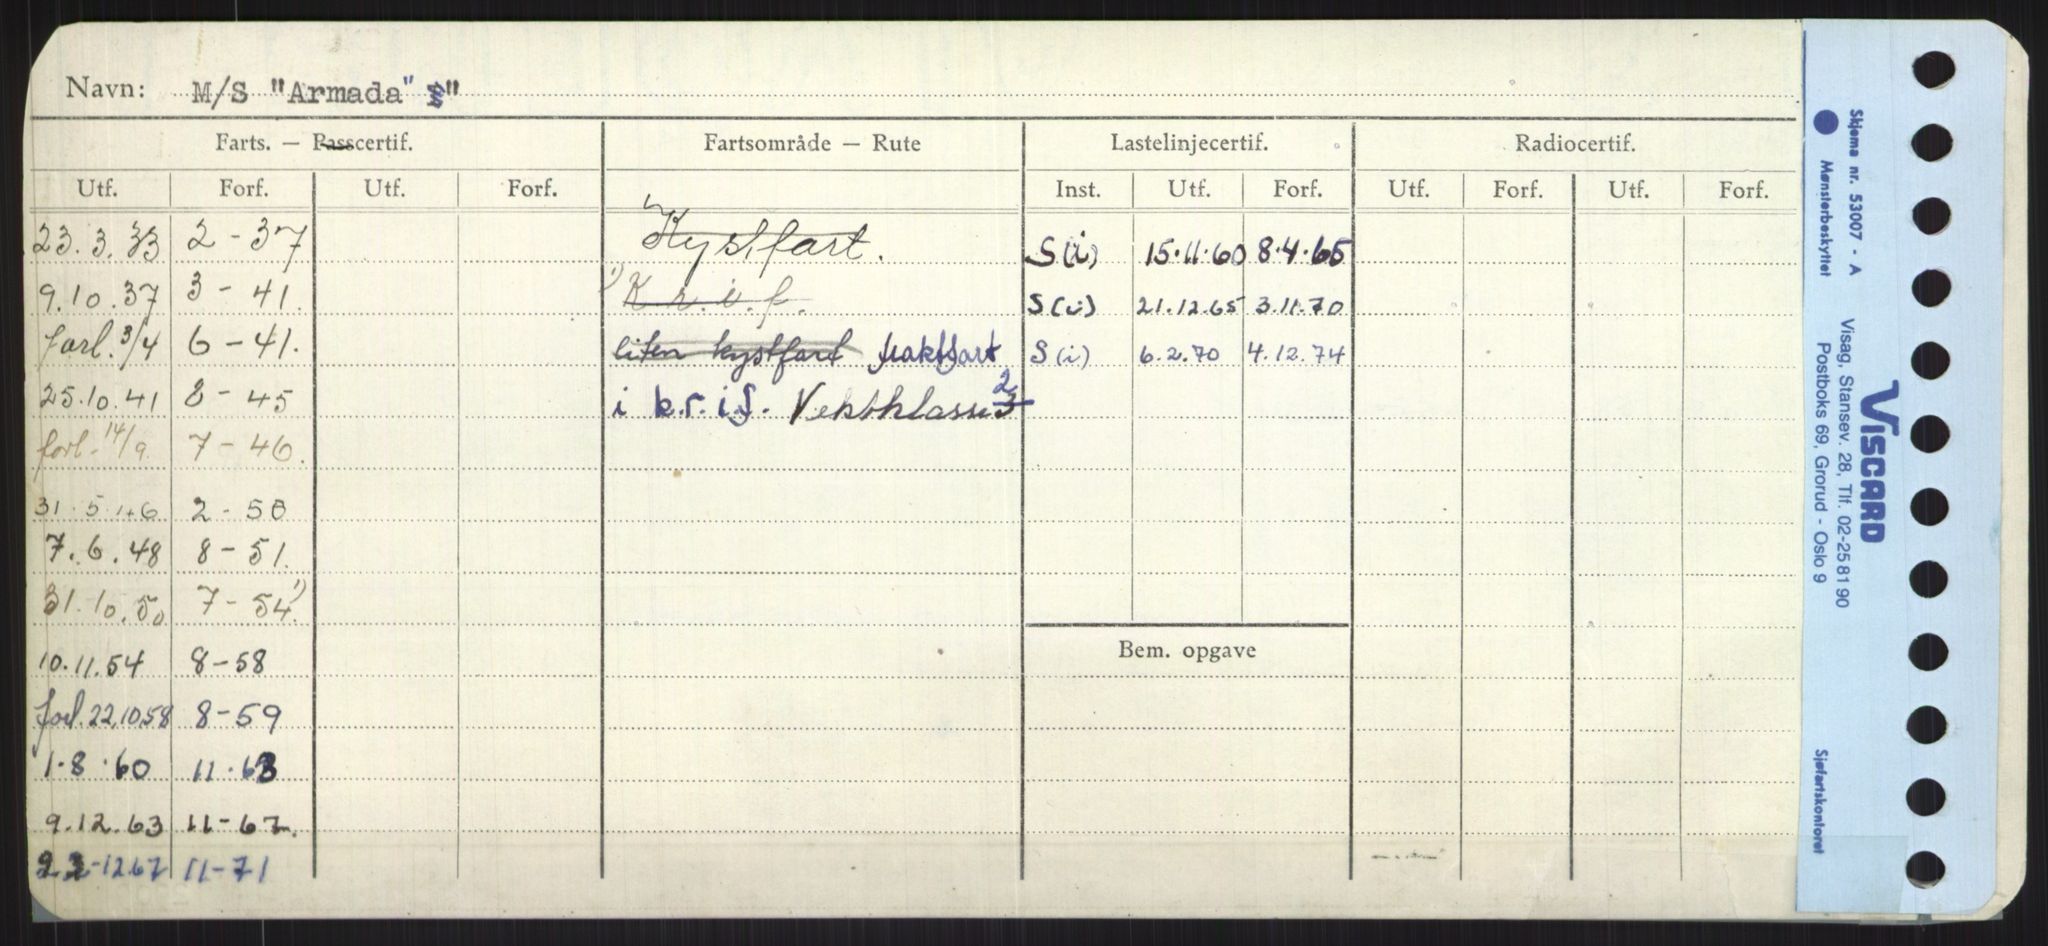 Navn: M/S "Armada" "
Farts. — Passcertif. Fartsområde — Rute Lastelinjecertif. Radiocertif.
Utf. Forf. Utf. Forf. Inst. Utf. Forf. Utf. Forf. Utf. Forf.
23.3.33 2 - 37 Kystfart. S(i) 15.11.60 8.4.65
9.10.37 3 - 41. 1) K.r.i.f. S(i) 21.12.65 3.11.70
forl. 3/4 6 - 41. liten kystfart fraktfart S(i) 6.2.70 4.12.74
25.10.41 8 - 45 i k.r.i.f. Vektklasse 3 2
forl. 14/9. 7 - 46.
31.5.46 2 - 50
7.6.48 8 - 51.
31.10.50 7 - 54. 1)
10.11.54 8 - 58
Bem. opgave
forl. 22.10.58 8 - 59
1.8.60 11.63
9.12.63 11 - 67.
22-12.67 11-71
Skjema nr. 53007 - A
Mønsterbeskyttet
VISCARD
Visag, Stansev. 28, Tlf. 02-25 81 90
Postboks 69, Grorud - Oslo 9
Sjøfartskontoret